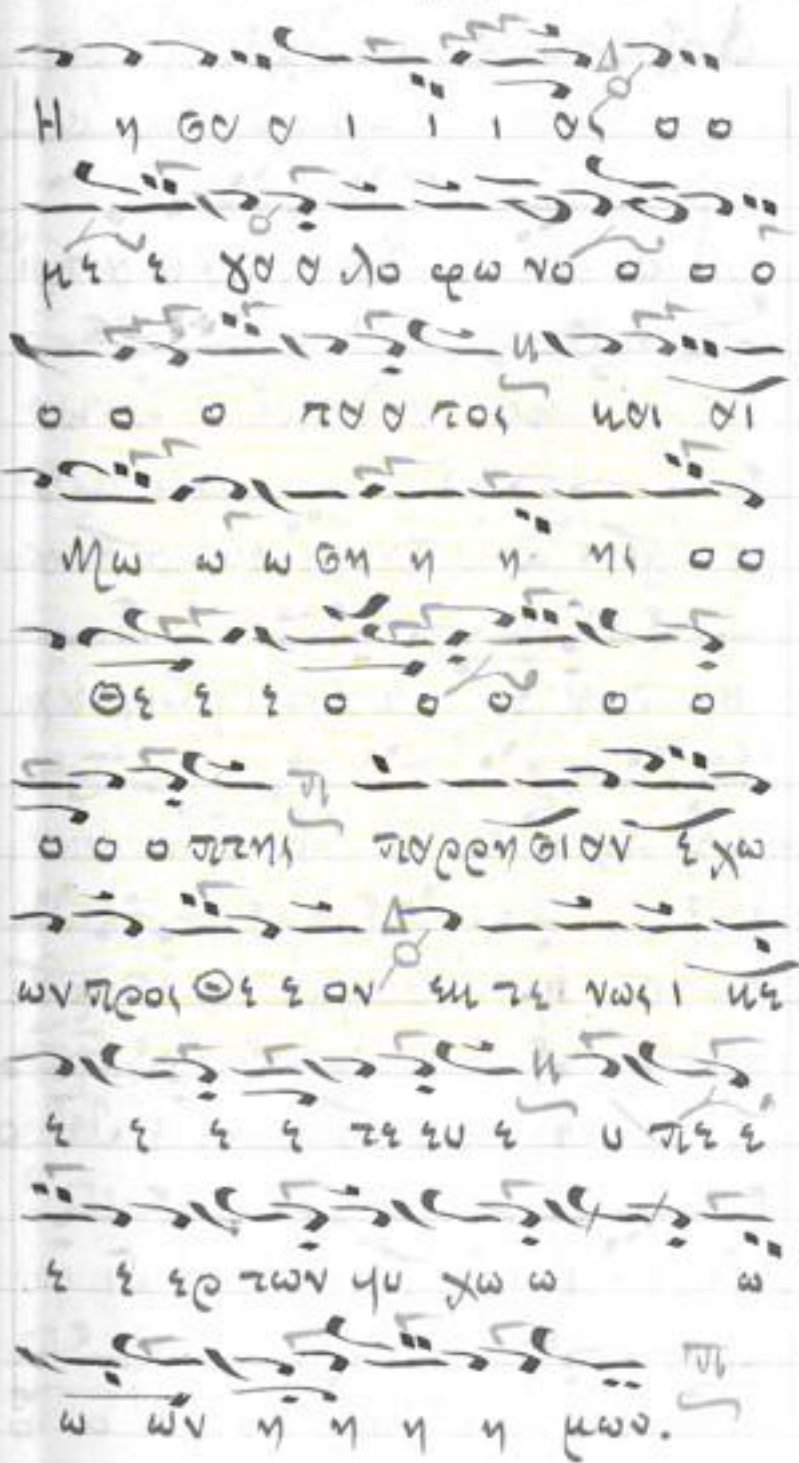 Η η σα α ι ι ι ας ο ο
με ε γα α λο φω νο ο ο ο
ο ο ο πα α τος και αι
Μω ω ω ση η η ης ο ο
Θε ε ε ο ο ο ο ο
ο ο ο πτης παρρησιαν ε χω
ων προς Θε ε ον εκ τε νως ι κε
ε ε ε ε τε ευ ε υ πε ε
ε ε ερ των ψυ χω ω ω
ω ων η η η η μων.